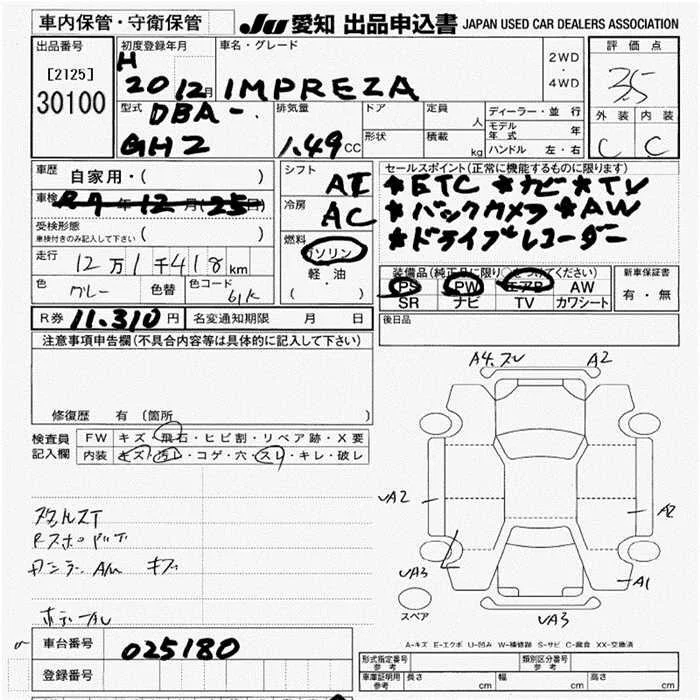 車内保管・守衛保管
JU 愛知 出品申込書 JAPAN USED CAR DEALERS ASSOCIATION
出品番号
[2125]
30100
初度登録年月
H
20 年 12 月
車名・グレード
IMPREZA
2WD
・
4WD
評価点
3.5
外装 内装
C C
型式
DBA-
GH2
排気量
1.49 CC
ドア
形状
定員 人
積載 kg
ディーラー・並行
モデル年式 年
ハンドル 左・右
車歴 自家用・( )
車検 R7年12月(25日)
受検形態
車検付きのみ記入して下さい ( )
走行 12万1千418km
色 グレー 色替 色コード 61K
シフト AT
冷房 AC
燃料 ガソリン
軽油
( ・ )
セールスポイント(正常に機能するものに限ります)
*ETC *ナビ *TV
*バックカメラ *AW
*ドライブレコーダー
装備品(純正品に限り○をつけてください)
PS PW エアB AW
SR ナビ TV カワシート
新車保証書
有・無
R券 11,310円 名変通知期限 月 日
後日品
注意事項申告欄(不具合内容等は具体的に記入して下さい)
修復歴 有(箇所 )
検査員
記入欄
FW キズ・飛石・ヒビ割・リペア跡・X要
内装 キズ・汚レ・コゲ・穴・スレ・キレ・破レ
A4.スレ A2
UA2 A2
UA3 A1
UA3
スペア
A-キズ E-エクボ U-凹み W-補修跡 S-サビ C-腐食 XX-交換済
車台番号 025180
登録番号
形式指定番号
参考
類別区分番号
参考
車庫証明用
参考
長さ cm 幅 cm 高さ cm